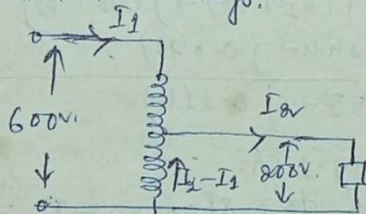 I1
600v.
I2
I2-I1
200v.